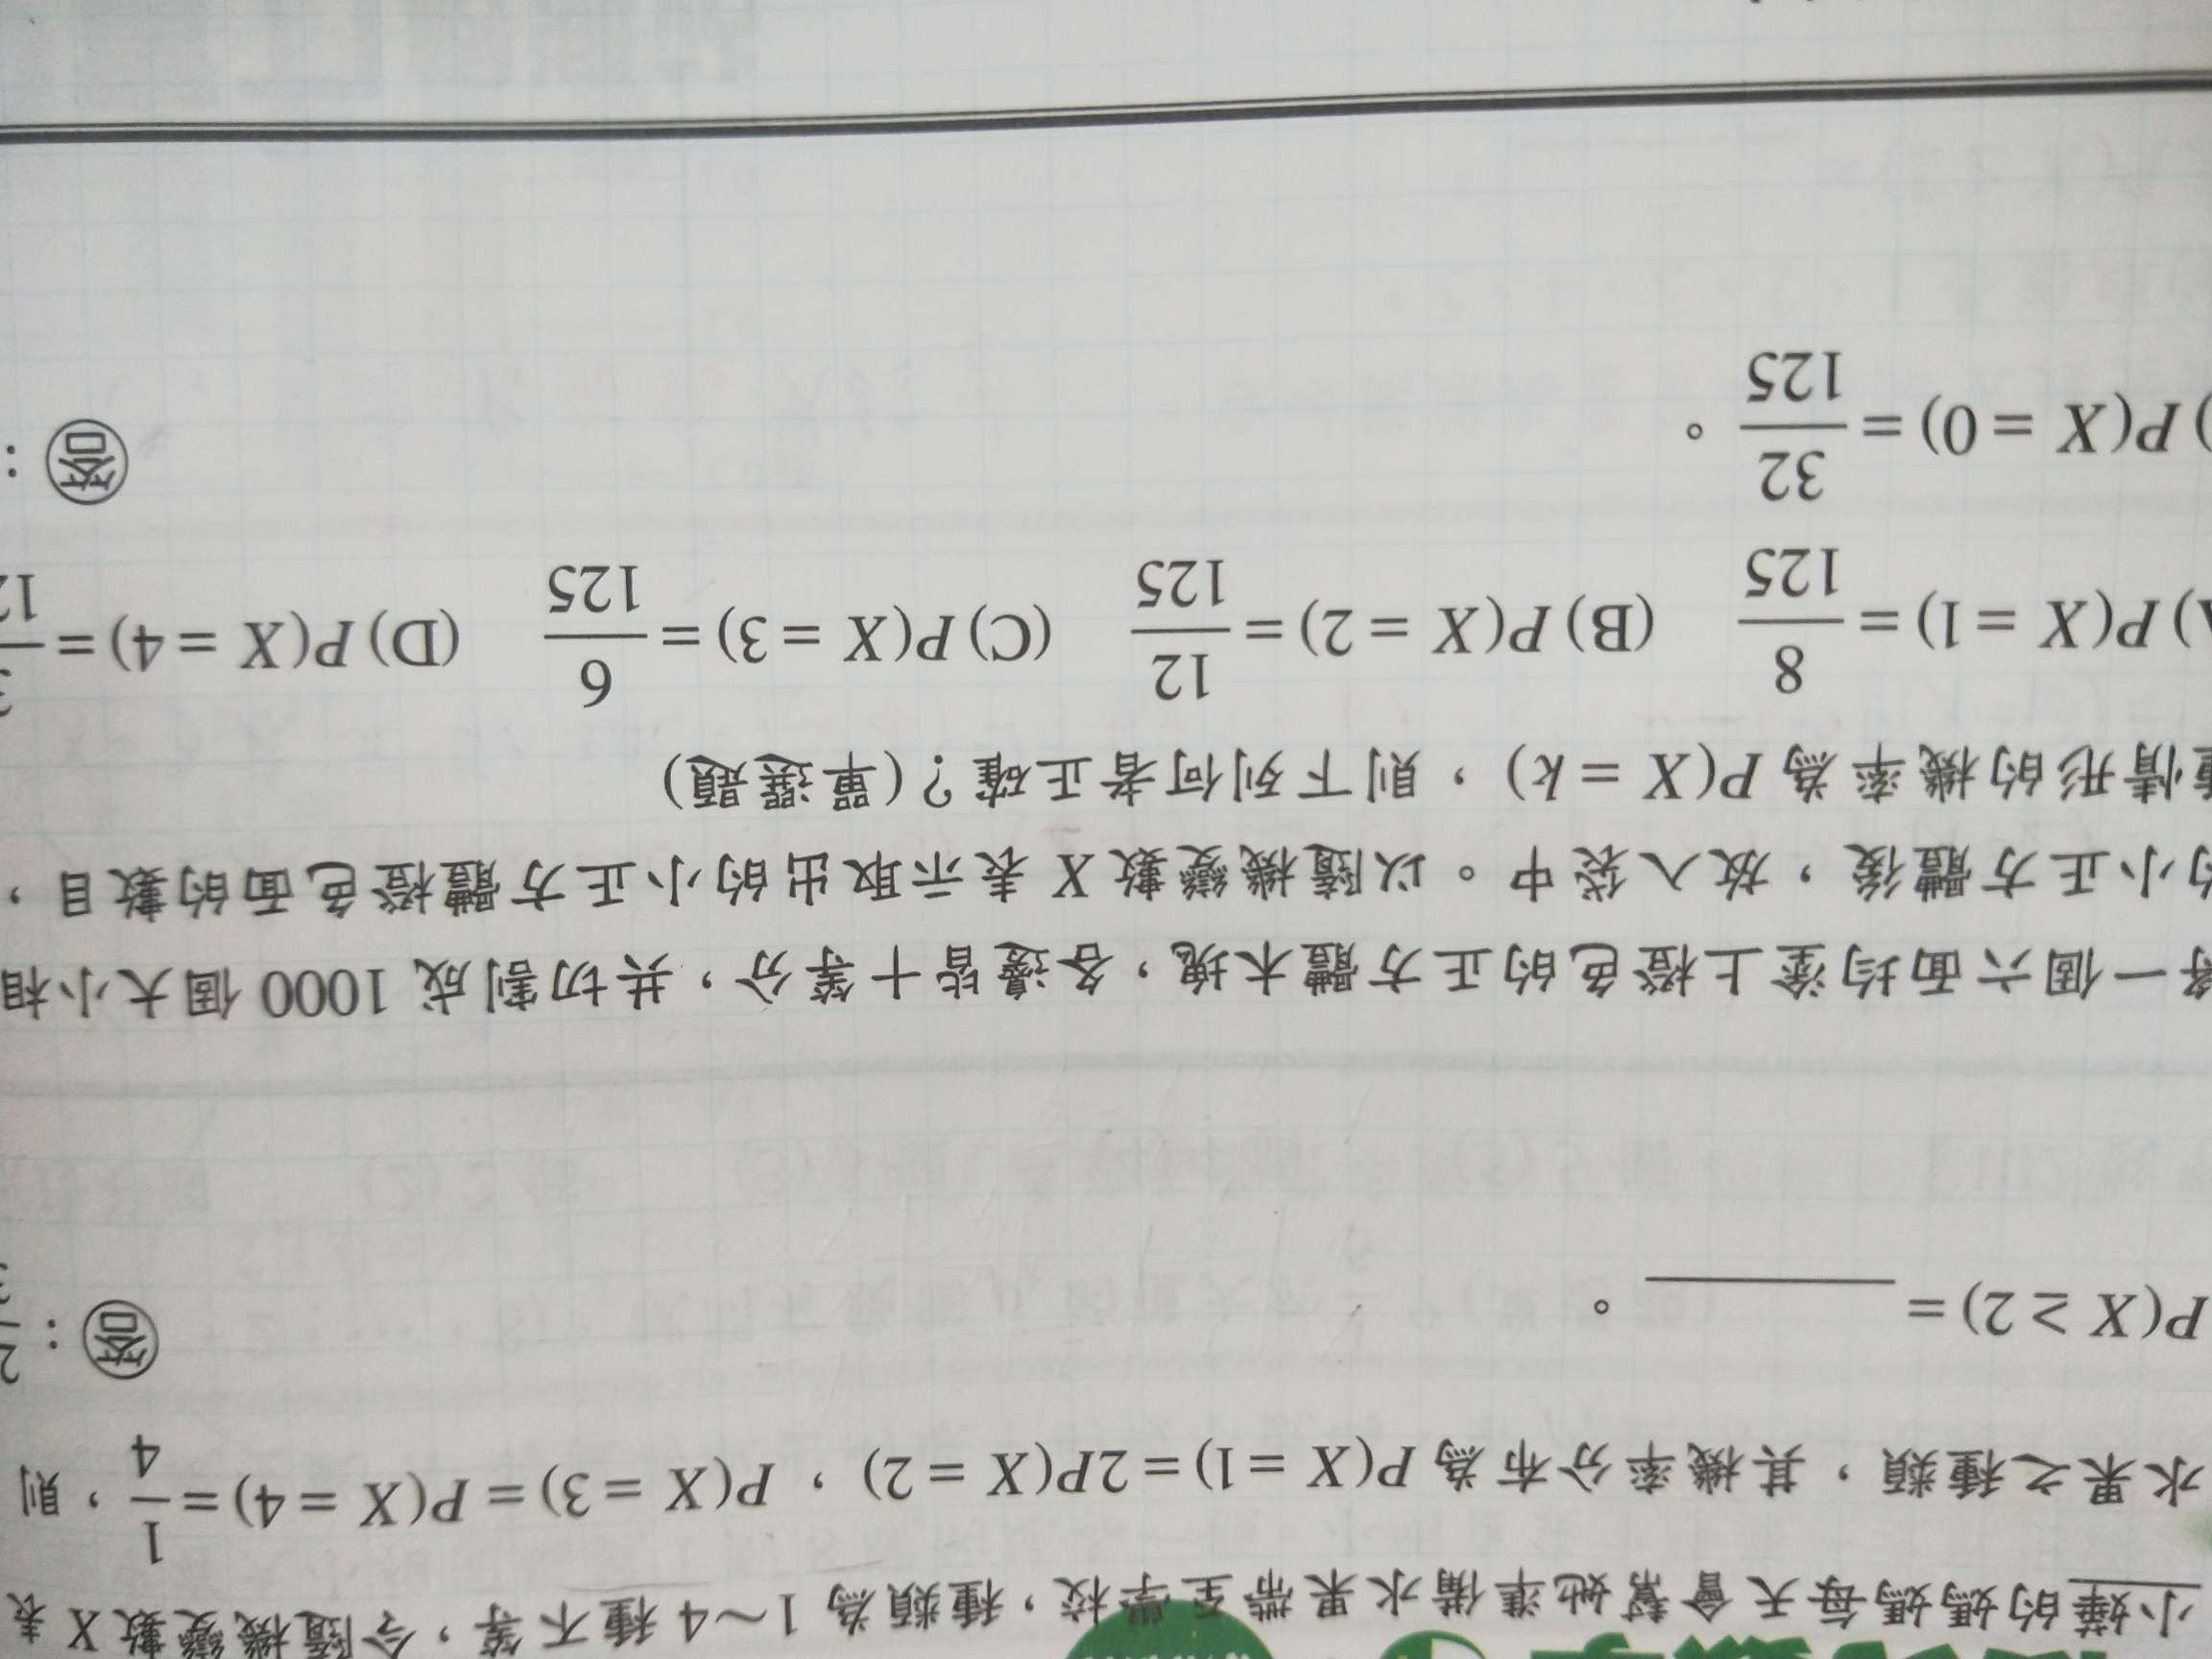 小嬅的媽媽每天會幫她準備水果帶至學校，種類為 1～4 種不等，令隨機變數 X 表
水果之種類，其機率分布為 P(X = 1) = 2P(X = 2)， P(X = 3) = P(X = 4) = 1/4，則
P(X ≥ 2) = ＿＿＿＿。 答：
一個六面均塗上橙色的正方體木塊，各邊皆十等分，共切割成 1000 個大小相
的小正方體後，放入袋中。以隨機變數 X 表示取出的小正方體橙色面的數目，
情形的機率為 P(X = k)，則下列何者正確？(單選題)
) P(X = 1) = 8/125 (B) P(X = 2) = 12/125 (C) P(X = 3) = 6/125 (D) P(X = 4) =
) P(X = 0) = 32/125。 答：